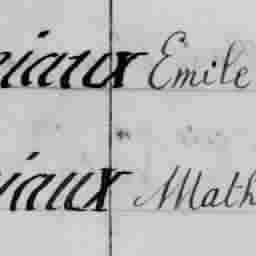 iaux Emile
iaux Math